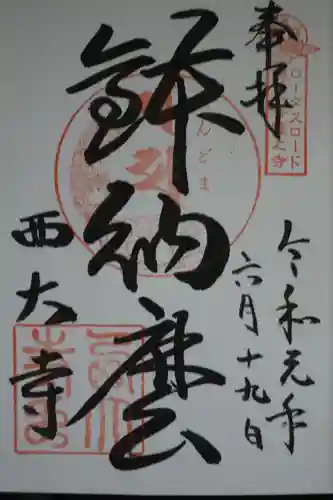 奉拝
ロータスロード
令和元年
六月十九日
鉢納麼
んどま
西大寺